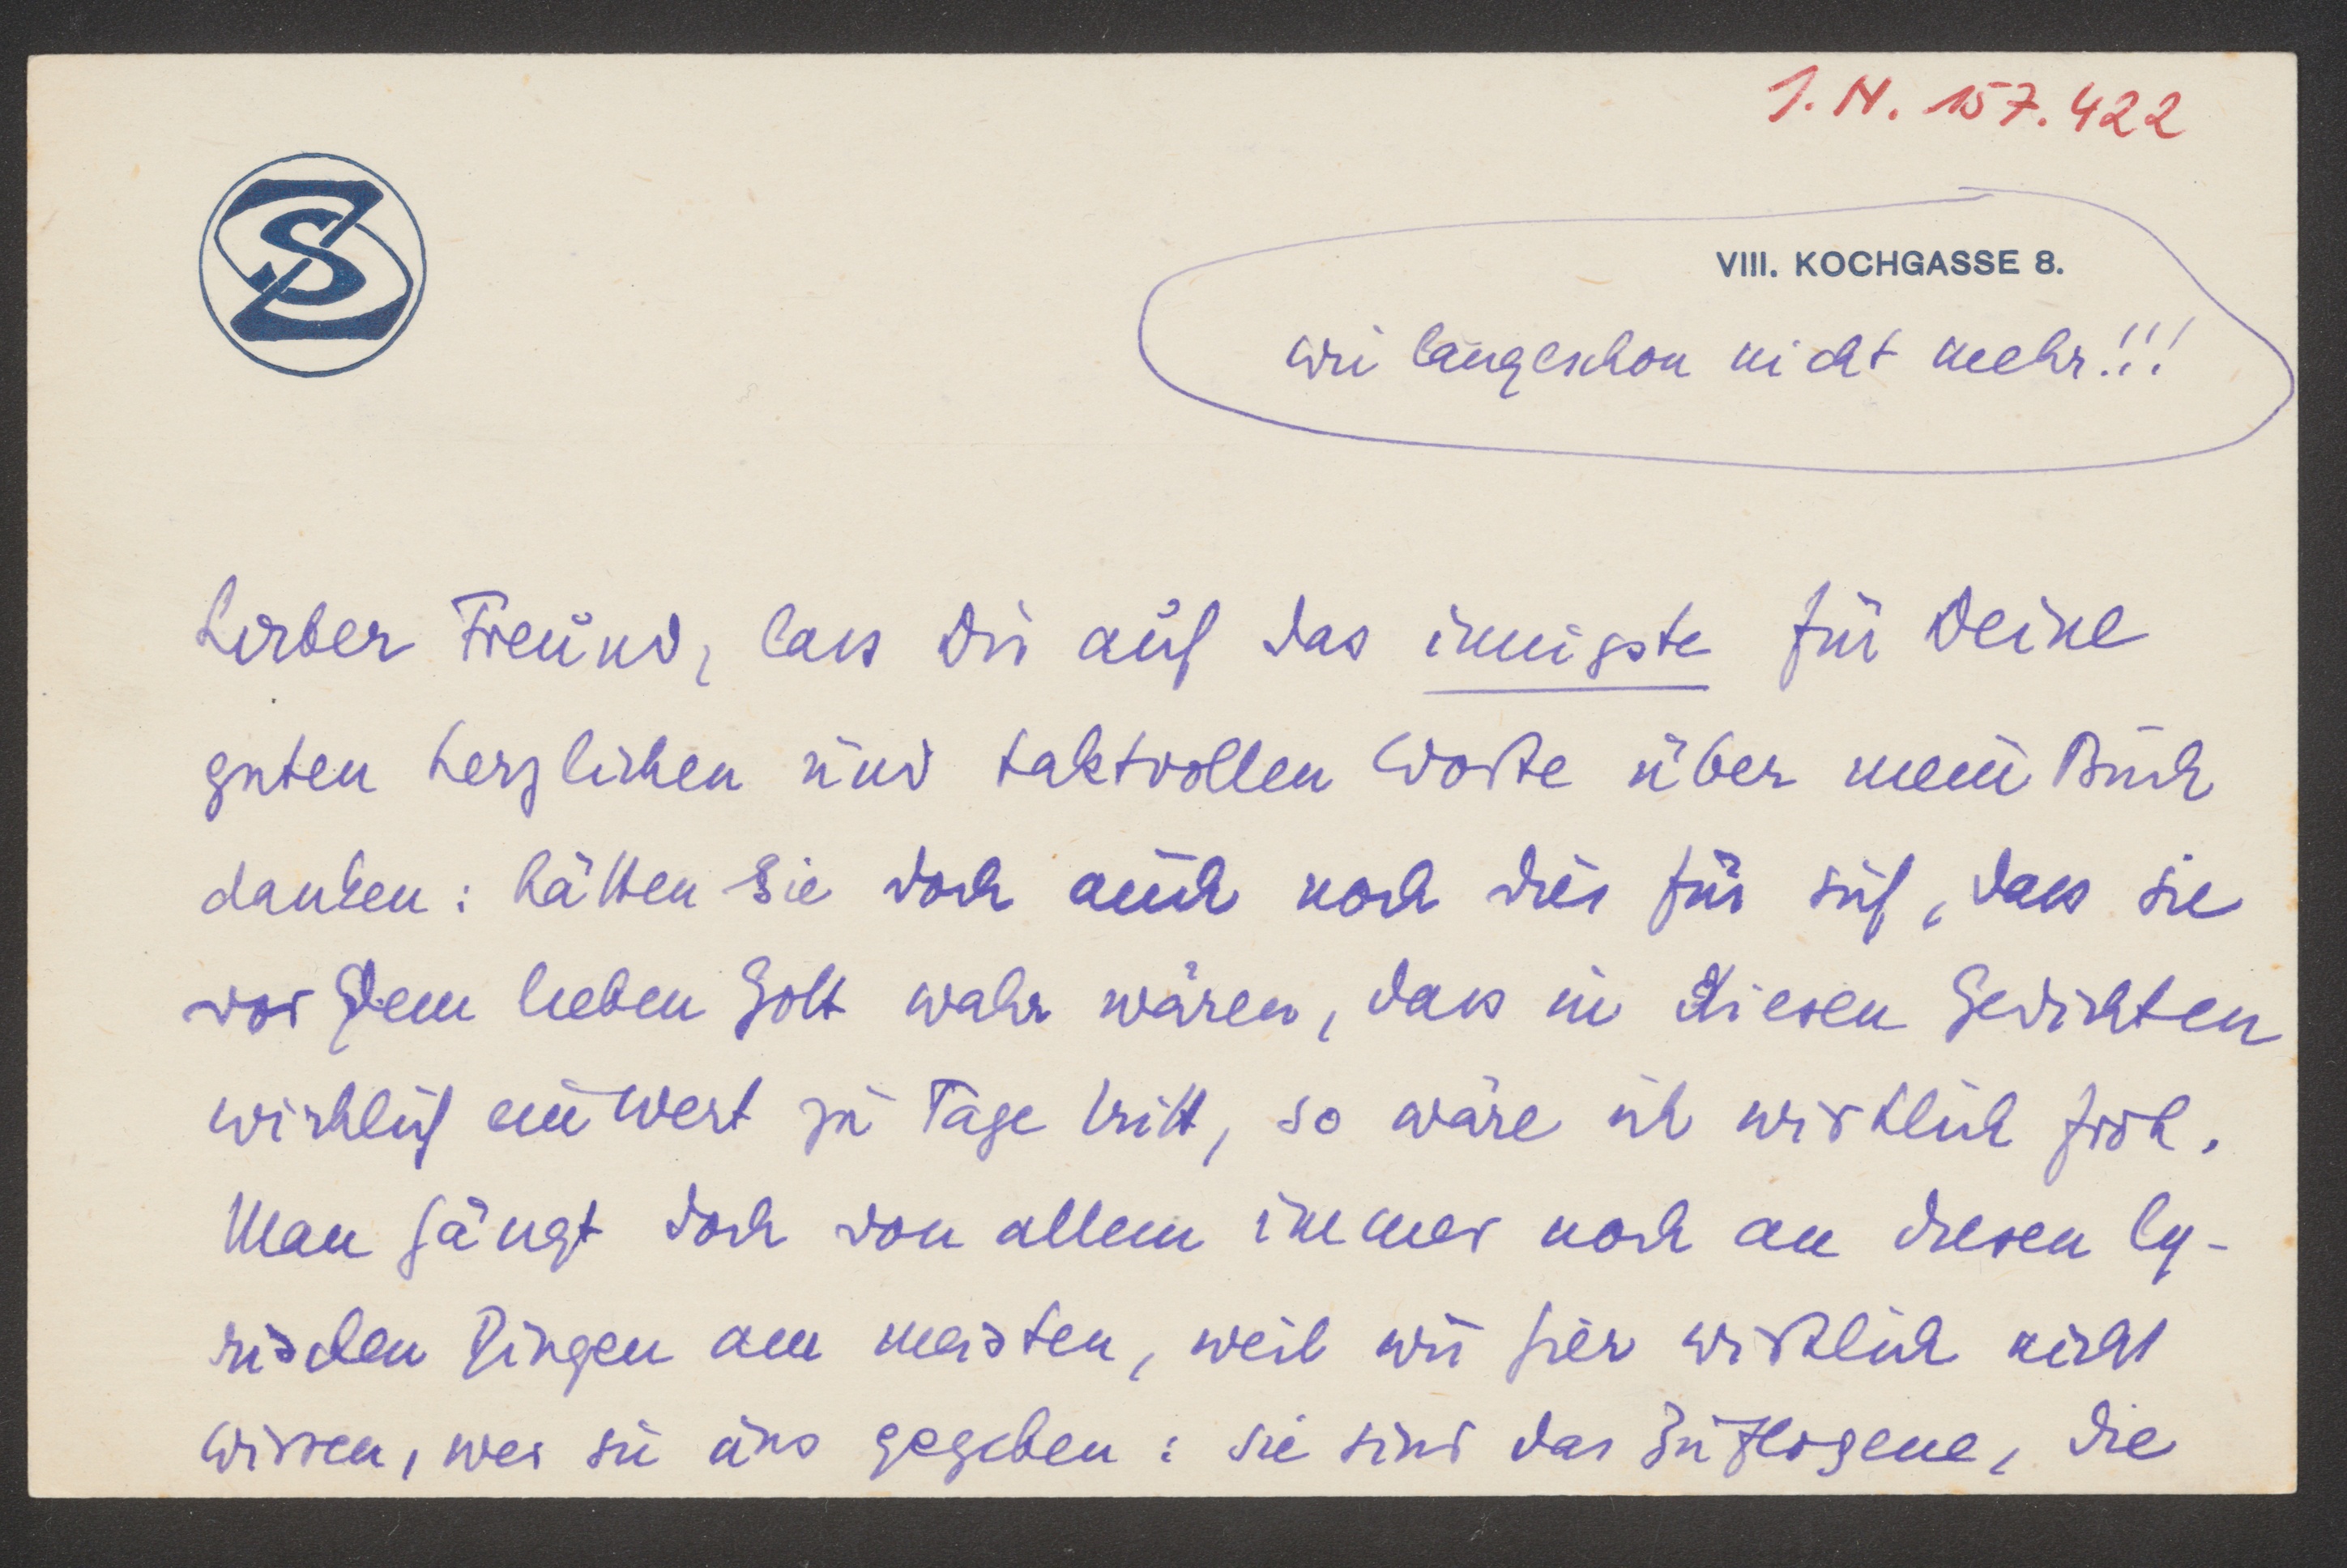 I.N. 157.422
SZ
VIII. KOCHGASSE 8.
wie lange schon nicht mehr!!!
Lieber Freund, lass Dir auf das innigste für Deine
guten herzlichen und taktvollen Worte über mein Buch
danken: hätten Sie doch auch noch dies für sich, dass sie
vor dem lieben Gott wahr wären, dass in diesen Gedichten
wirklich ein Wert zu Tage tritt, so wäre ich wirklich froh.
Man hängt doch von allem immer noch an diesen ly-
rischen Dingen am meisten, weil wir hier wirklich nicht
wissen, wer sie uns gegeben: sie sind das Zugeflogene, die